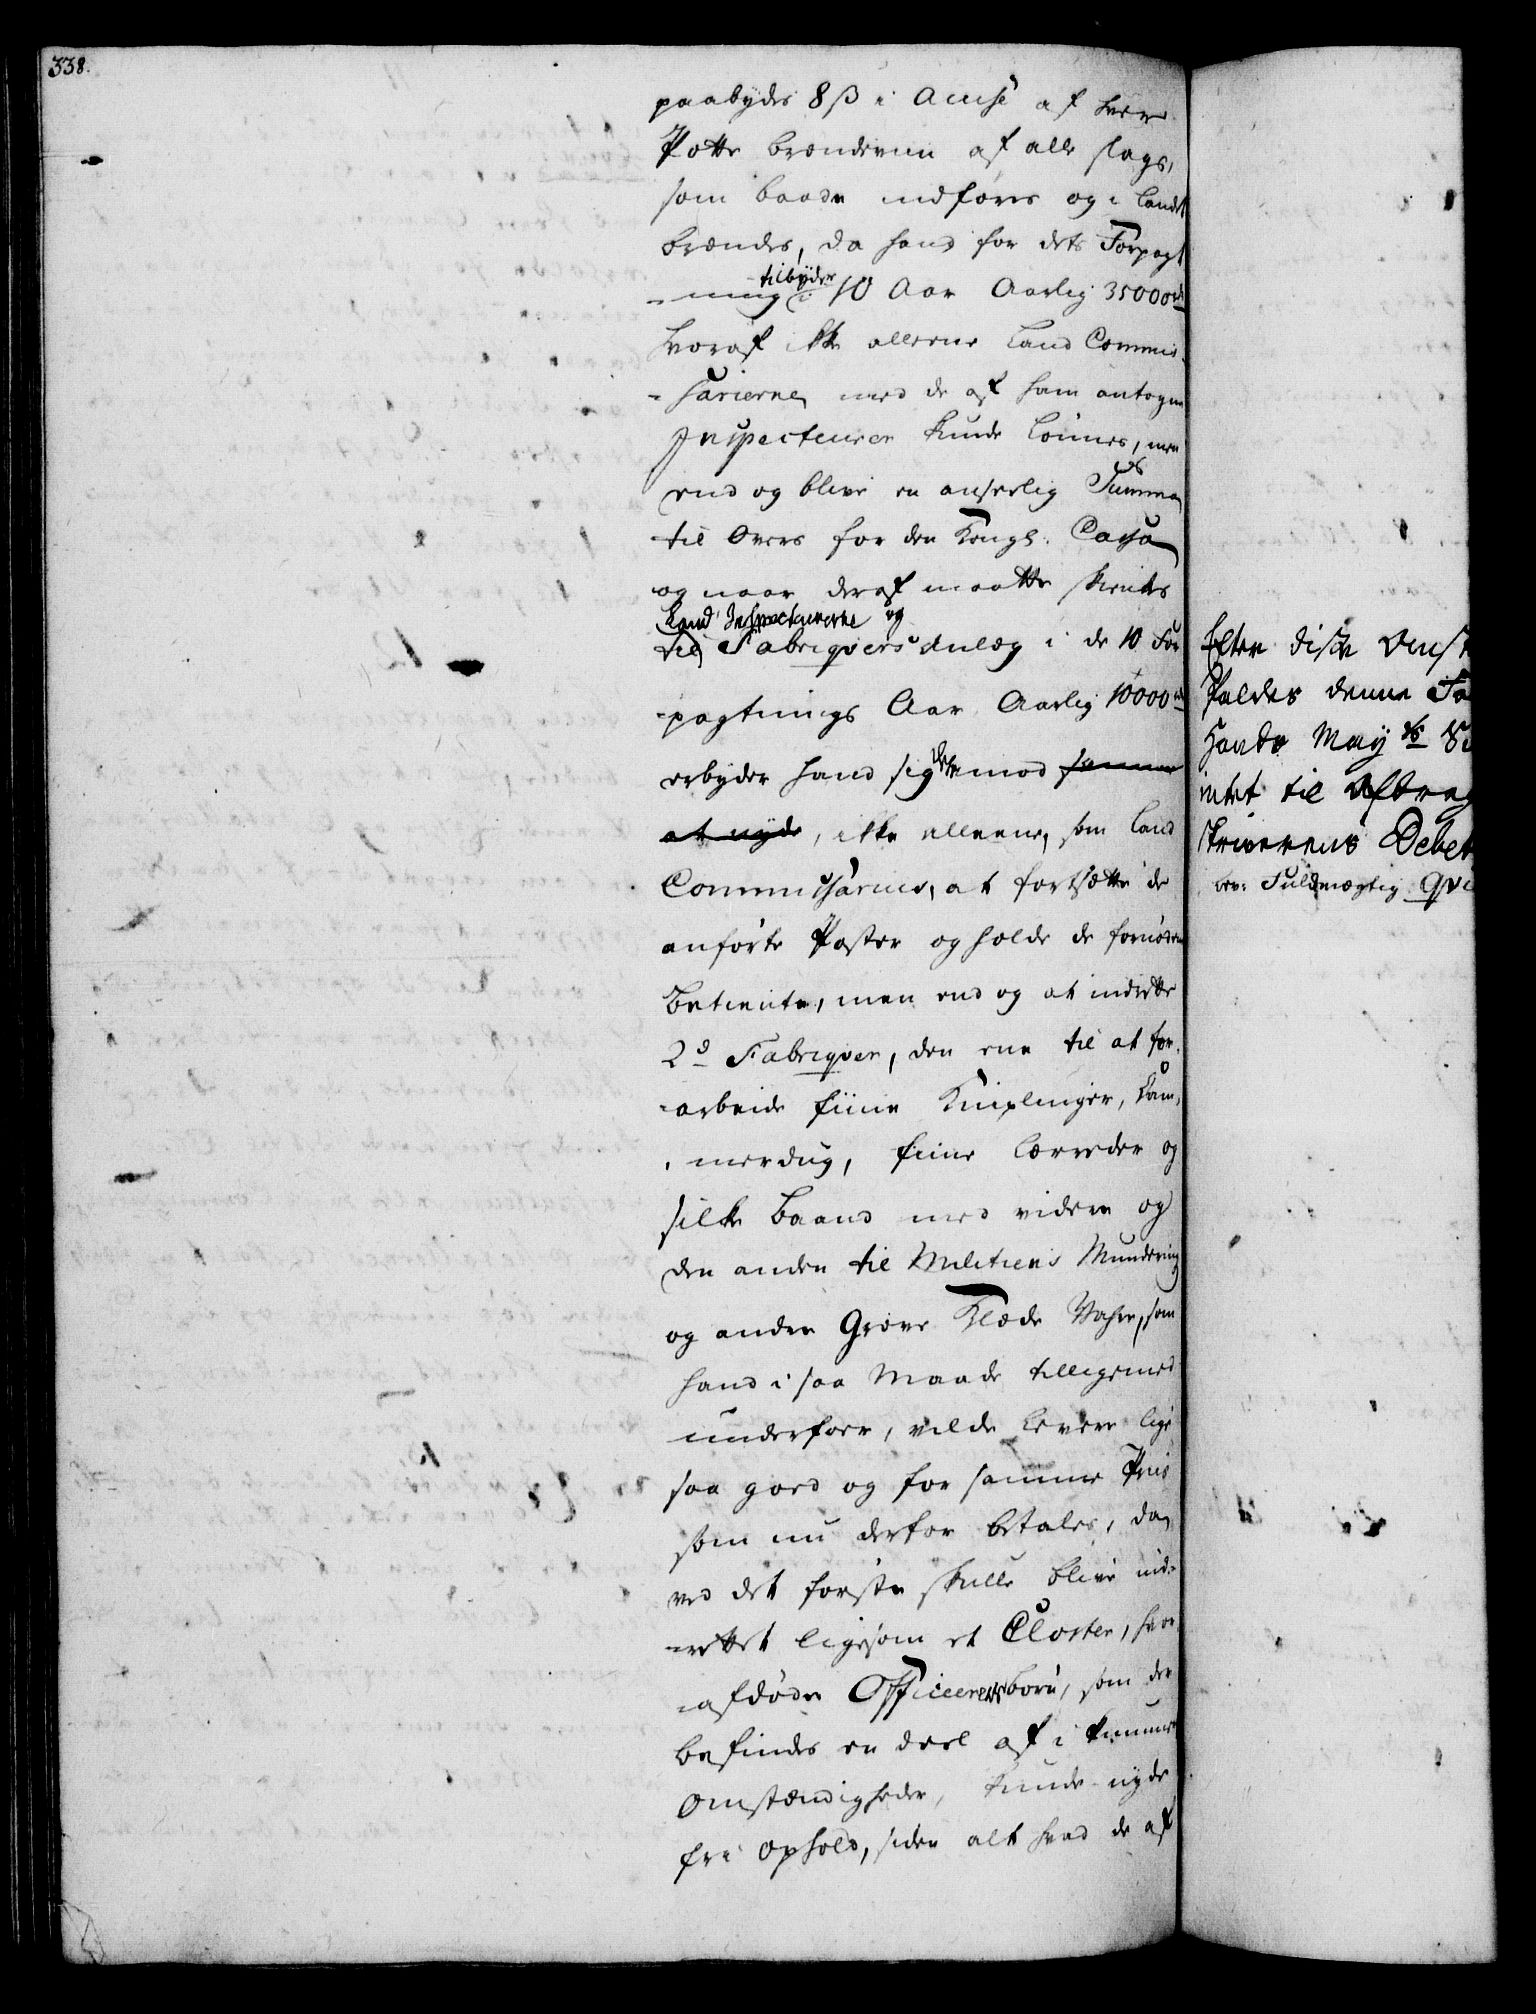 338.
paabydes 8 ß i Accise af hver
Potte brændeviin af alle slags,
som baade indføres og i Landet
brændes, da hand for dets Forpagt
-ning tilbyder i 10 Aar Aarlig 35000 rd
hvoraf ikke alleene Land Commis-
-sarierne med de af ham antagne
Inspecteurer kunde lønnes, men
end og blive en anseelig Summa
til Overs for den Kongl. Cassa
og naar deraf maatte skienkes
Land Inspecteurerne og
til Fabriqvers Anlæg i de 10 For
-pagtnings Aar Aarlig 10000 rd
erbyder hand sig derimod samme
at nyde, ikke alleene, som Land
Commissarius, at fortsætte de
anførte Poster og holde de fornødne
Betiente, men end og at indrette
2de Fabriqver, den ene til at for-
-arbeide fiine Kniplinger, Kam-
-merdug, fiine Lærreder og
silke Baand med videre og
den anden til Militiens Mundering
og anden Grove Klæde Vahre, som
hand i saa Maade tilligemed
underfoer, vilde levere lige
saa goed og for samme Priis
som nu derfor betales, da
ved det første skulle blive ind-
-rettet ligesom et Closter, hvor
afdøde Officeerers børn, som der
befindes en deel af i kummer
Omstændigheder, kunde nyde
frie Ophold, siden alt hvad de af
Efter disse Omst
faldes denne Fo
Hands May ts
intet til Afdrag
skriverens Debet
bev: Fuldmægtig Qvi